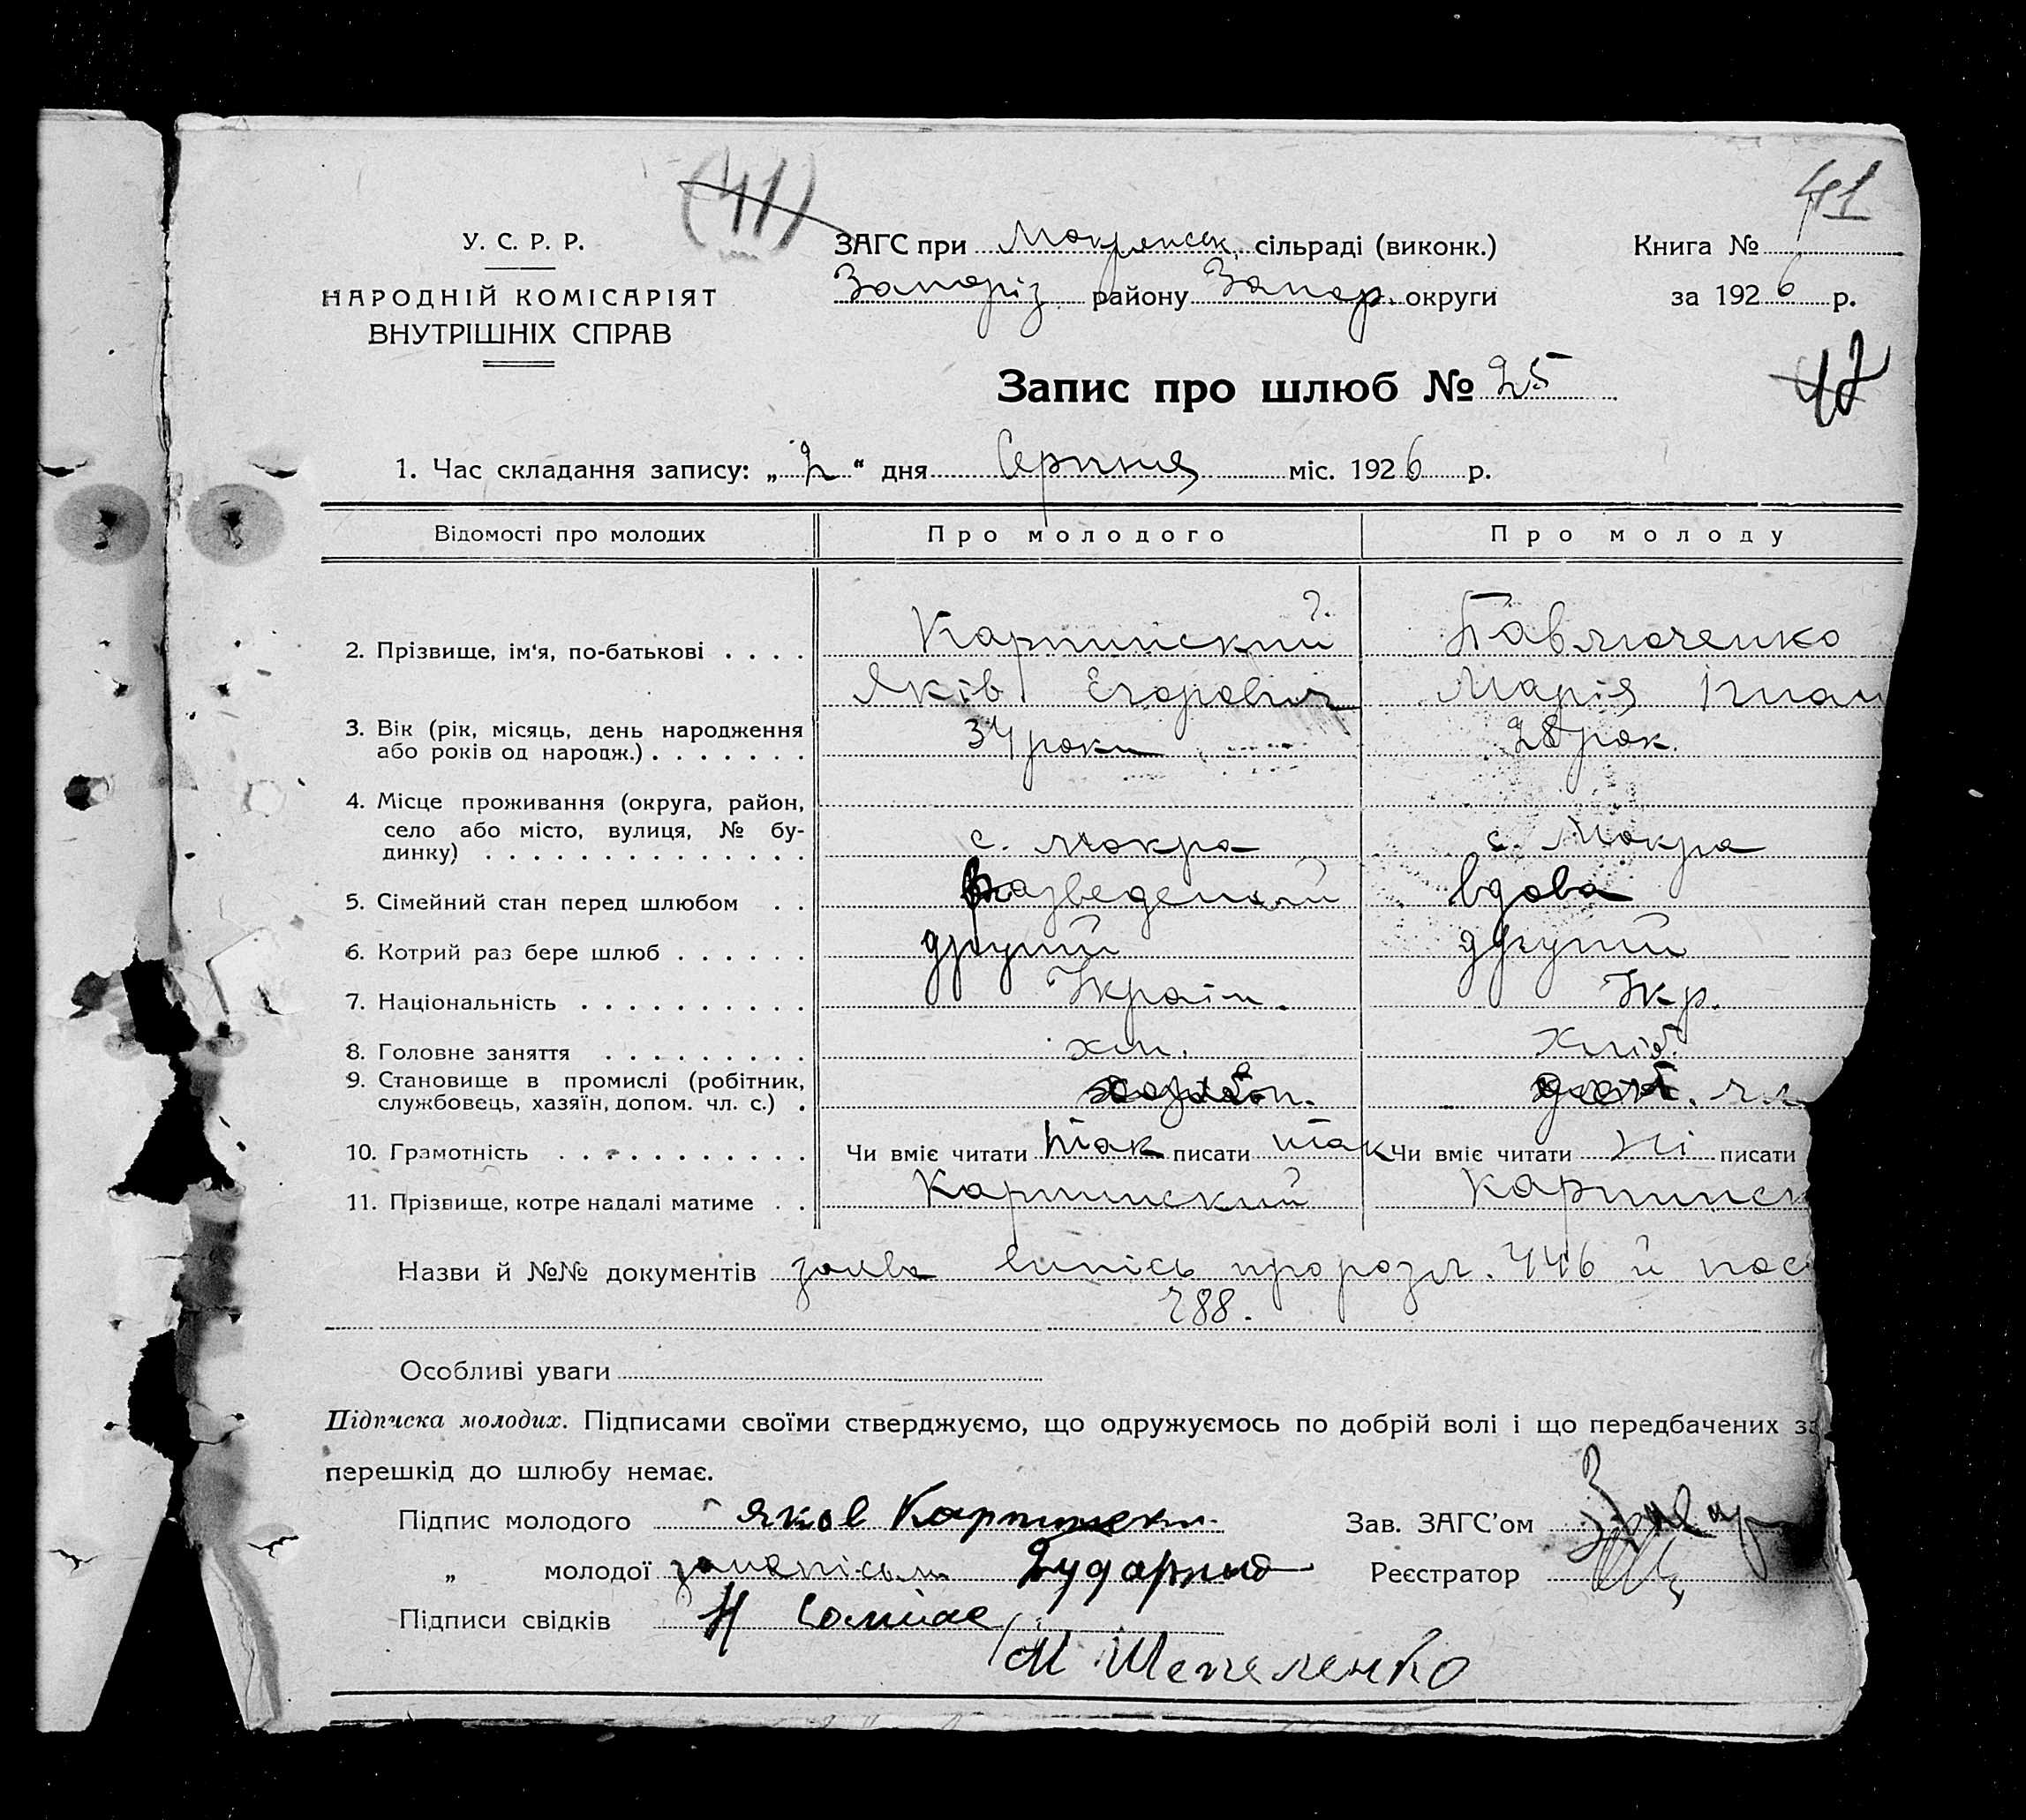 (41)
41
У. С. Р. Р.
НАРОДНІЙ КОМІСАРІЯТ
ВНУТРІШНІХ СПРАВ
ЗАГС при Мокрянськ. сільраді (виконк.)
Запоріз. району Запор. округи
Книга №
за 1926 р.
Запис про шлюб № 25
42
1. Час складання запису: „2“ дня Серпня міс. 1926 р.
Відомості про молодих Про молодого Про молоду
2. Прізвище, ім'я, по-батькові . . . . Карпинский Павлюченко
Яків Егорович Марія Ігнат
3. Вік (рік, місяць, день народження
або років од народж.) . . . . . . . 34 роки 28 рок.
4. Місце проживання (округа, район,
село або місто, вулиця, № бу-
динку) . . . . . . . . . . . . . . с. Мокра с. Мокра
5. Сімейний стан перед шлюбом . . Разведений вдова
6. Котрий раз бере шлюб . . . . . . другий другий
7. Національність . . . . . . . . . . Украін. Укр.
8. Головне заняття . . . . . . . . . хл. хліб.
9. Становище в промислі (робітник,
службовець, хазяїн, допом. чл. с.) .
10. Грамотність . . . . . . . . . . . Чи вміє читати так писати так Чи вміє читати ні писати
11. Прізвище, котре надалі матиме . . Карпинский Карпинск
Назви й №№ документів заява випісь про розл. 446 й пос
288.
Особливі уваги
Підписка молодих. Підписами своїми стверджуємо, що одружуємось по добрій волі і що передбачених за
перешкід до шлюбу немає.
Підпис молодого Яков Карпинский Зав. ЗАГС'ом
„ молодої Реєстратор
Підписи свідків Н
М Шепеленко